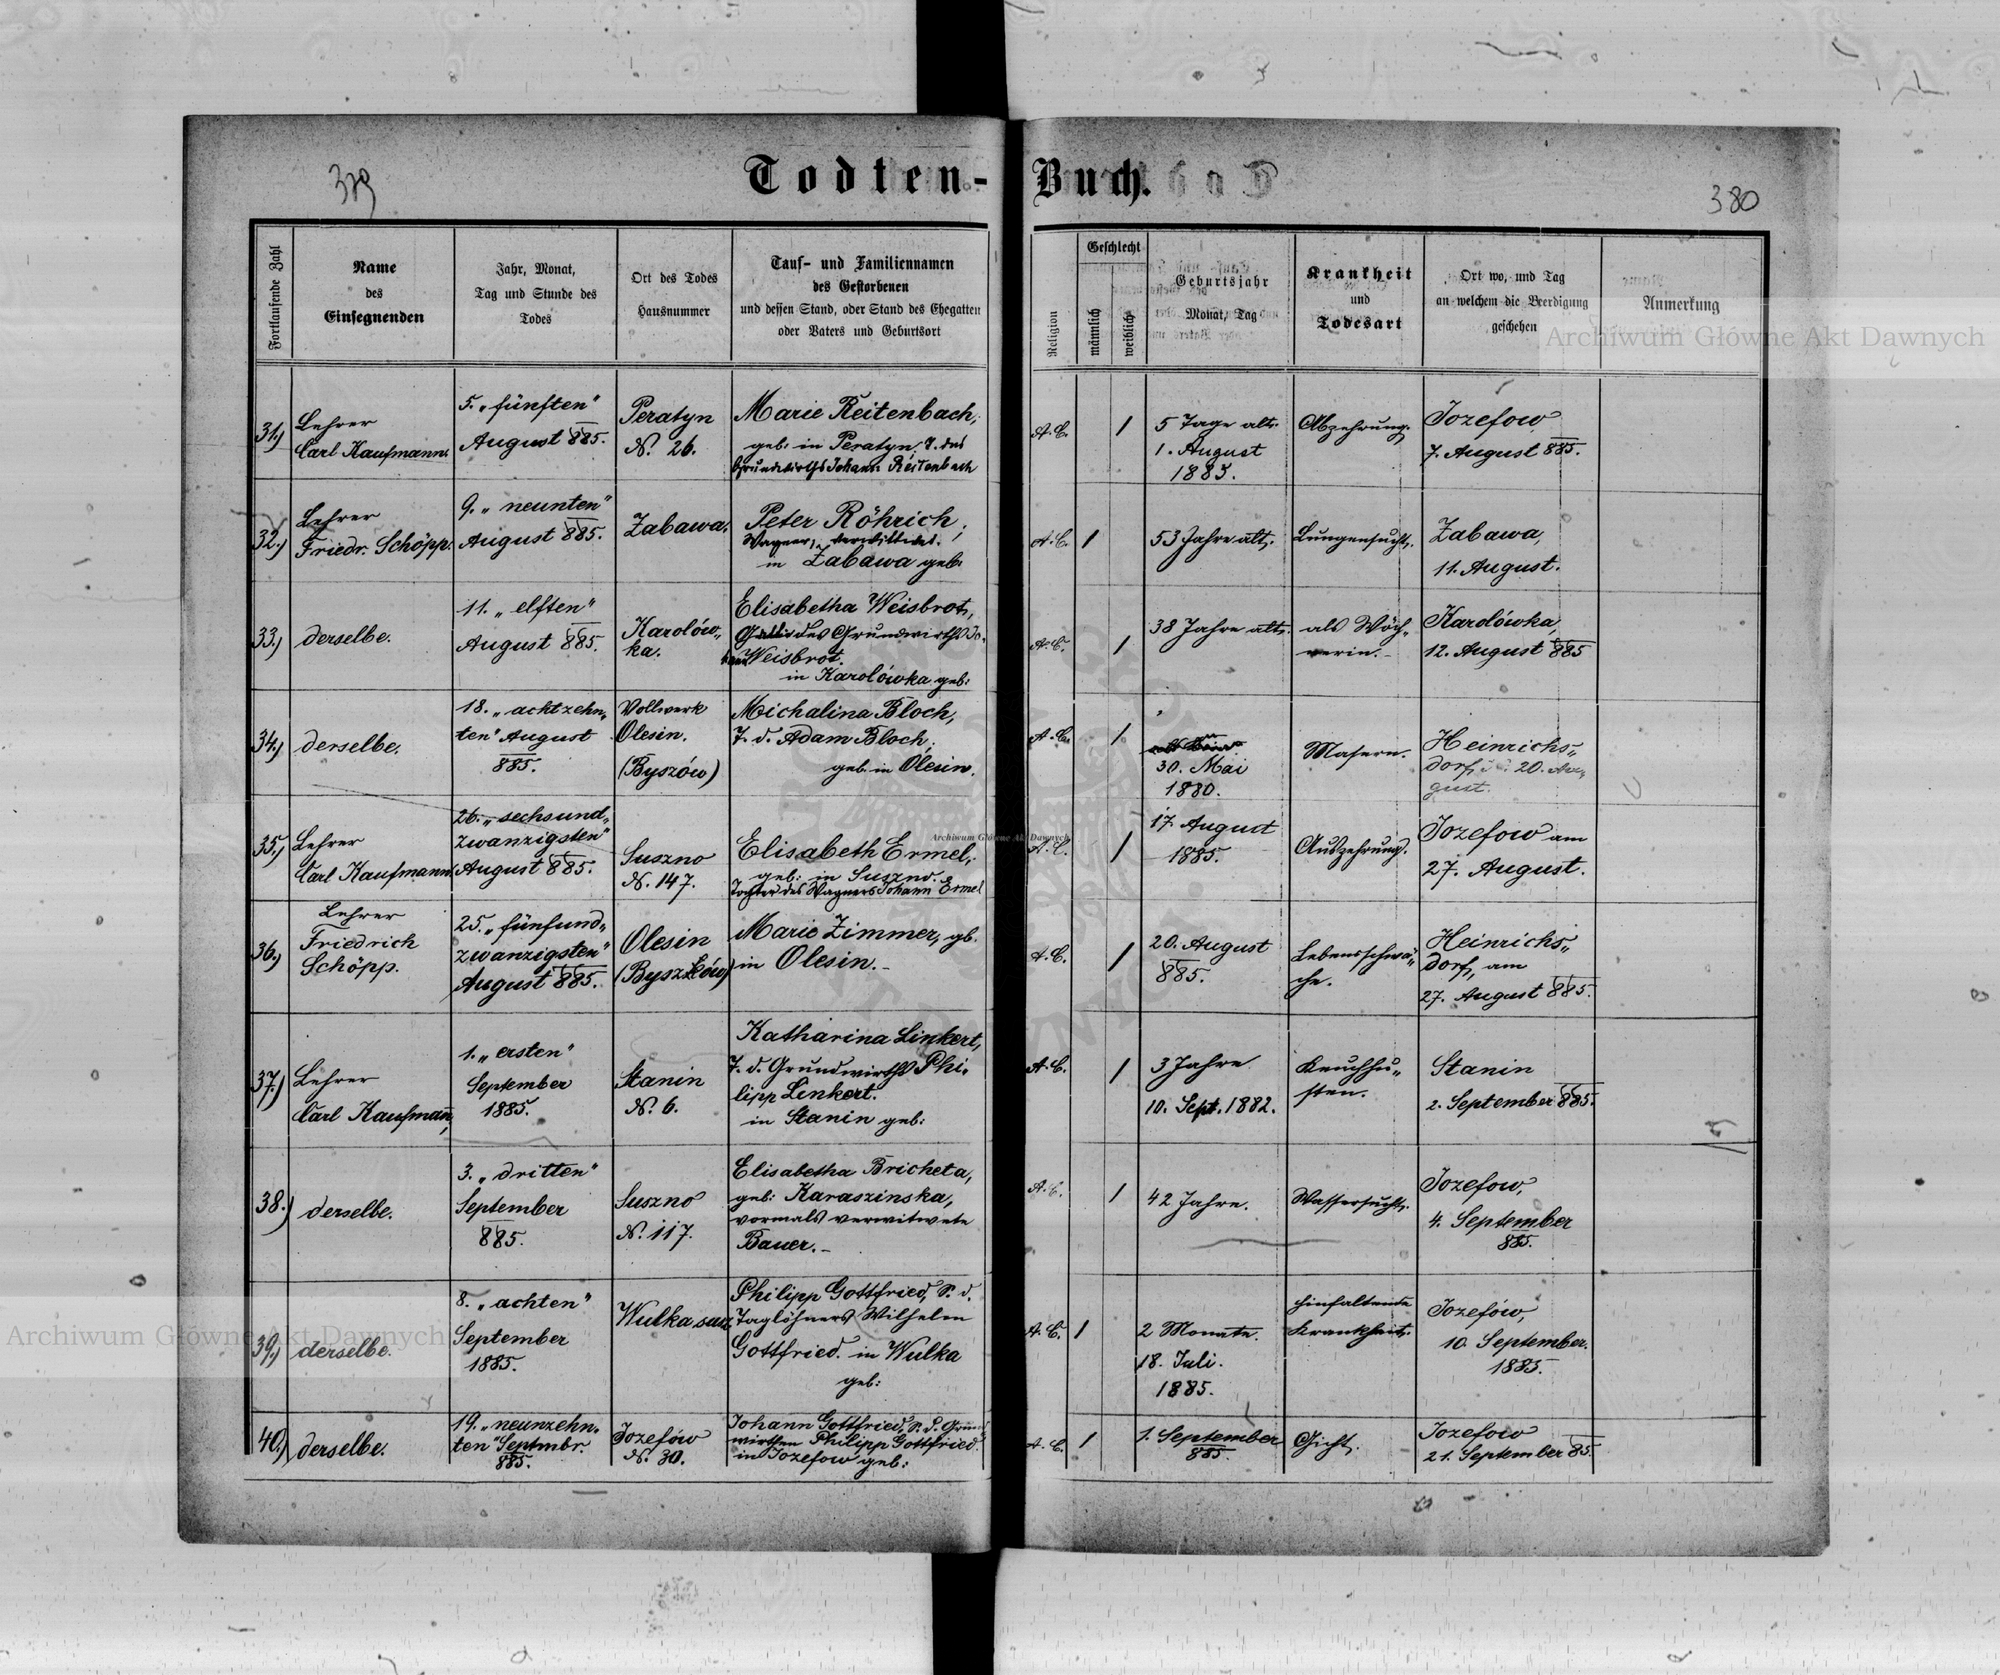 379
Todten-Buch.
380
Fortlaufende Zahl
Name
des
Einsegnenden
Jahr, Monat,
Tag und Stunde des
Todes
Ort des Todes
Hausnummer
Tauf- und Familiennamen
des Gestorbenen
und dessen Stand, oder Stand des Ehegatten
oder Vaters und Geburtsort
Religion
Geschlecht
männlich
weiblich
Geburtsjahr
Monat, Tag
Krankheit
und
Todesart
Ort wo, und Tag
an welchem die Beerdigung
geschehen
Anmerkung
Archiwum Główne Akt Dawnych
31.)
Lehrer
Carl Kaufmann.
5. „fünften"
August 885.
Peratyn
N. 26.
Marie Reitenbach,
geb: in Peratyn, T. des
Grundwirths Johann Reitenbach
A. C.
1
5 Tage alt.
1. August
1885.
Abzehrung.
Jozefow
7. August 885.
32.)
Lehrer
Friedr. Schöpp.
9. „neunten"
August 885.
Zabawa.
Peter Röhrich,
Wagner, verwittwet.
in Zabawa geb:
A. C.
1
53 Jahre alt.
Lungensucht.
Zabawa,
11. August.
33.)
derselbe.
11. „elften"
August 885.
Karolów-
ka.
Elisabetha Weisbrot,
Gattin des Grundwirths Jo-
hann Weisbrot.
in Karolówka geb:
A. C.
1
38 Jahre alt.
als Wöch-
nerin.-
Karolówka,
12. August 885
34.)
derselbe.
18. „achtzehn-
ten" August
885.
Vollwerk
Olesin.
(Byszów)
Michalina Bloch,
T. d. Adam Bloch,
geb. in Olesin.
A. C.
1
30. Mai
1880.
Masern.
Heinrichs-
dorf, 20. Au-
gust.
35.)
Lehrer
Carl Kaufmann.
26. „sechsund-
zwanzigsten"
August 885.
Suszno
N. 147.
Elisabeth Ermel,
geb: in Suszno.
Tochter des Wagners Johann Ermel
Archiwum Główne Akt Dawnych
A. C.
1
17. August
1885.
Auszehrung.
Jozefow am
27. August.
36.)
Lehrer
Friedrich
Schöpp.
25. „fünfund-
zwanzigsten"
August 885.
Olesin
(Byszów)
Marie Zimmer, gb.
in Olesin.-
A. C.
1
20. August
885.
Lebensschwä-
che.
Heinrichs-
dorf, am
27. August 885.
37.)
Lehrer
Carl Kaufmann,
1. „ersten"
September
1885.
Stanin
N. 6.
Katharina Linkert,
T. d. Grundwirths Phi-
lipp Linkert.
in Stanin geb:
A. C.
1
3 Jahre
10. Sept. 1882.
Keuchhu-
sten.
Stanin
2. September 885.
38.)
derselbe.
3. „dritten"
September
885.
Suszno
N. 117.
Elisabetha Bricheta,
geb: Karaszinska,
vormals verwitwete
Bauer.-
A. C.
1
42 Jahre.
Wassersucht.
Jozefow,
4. September
885.
39.)
derselbe.
8. „achten"
September
1885.
Wulka susz.
Philipp Gottfried, S. d.
Taglöhners Wilhelm
Gottfried. in Wulka
geb:
A. C.
1
2 Monate.
18. Juli.
1885.
hinfallende
Krankheit.
Jozefów,
10. September.
1885.
Archiwum Główne Akt Dawnych
40.)
derselbe.
19. „neunzehn-
ten" Septmbr.
885.
Jozefów
N. 30.
Johann Gottfried, S. d. Grund
wirthen Philipp Gottfried.
in Jozefow geb:
A. C.
1
1. September
885.
Gicht.
Jozefow
21. September 85.